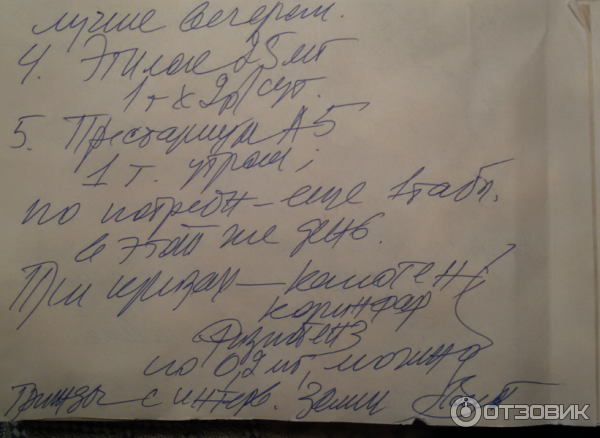 лучше вечером.
4. Эгилок 25 мг
1 т х 2 р/сут.
5. Престариум А5
1 т. утром,
по потребн – еще 1 табл.
в этот же день.
При кризах – капотен
коринфар
Физиотенз
по 0,2 мг, можно
трижды с интерв. 30 мин
ОТЗОВИК